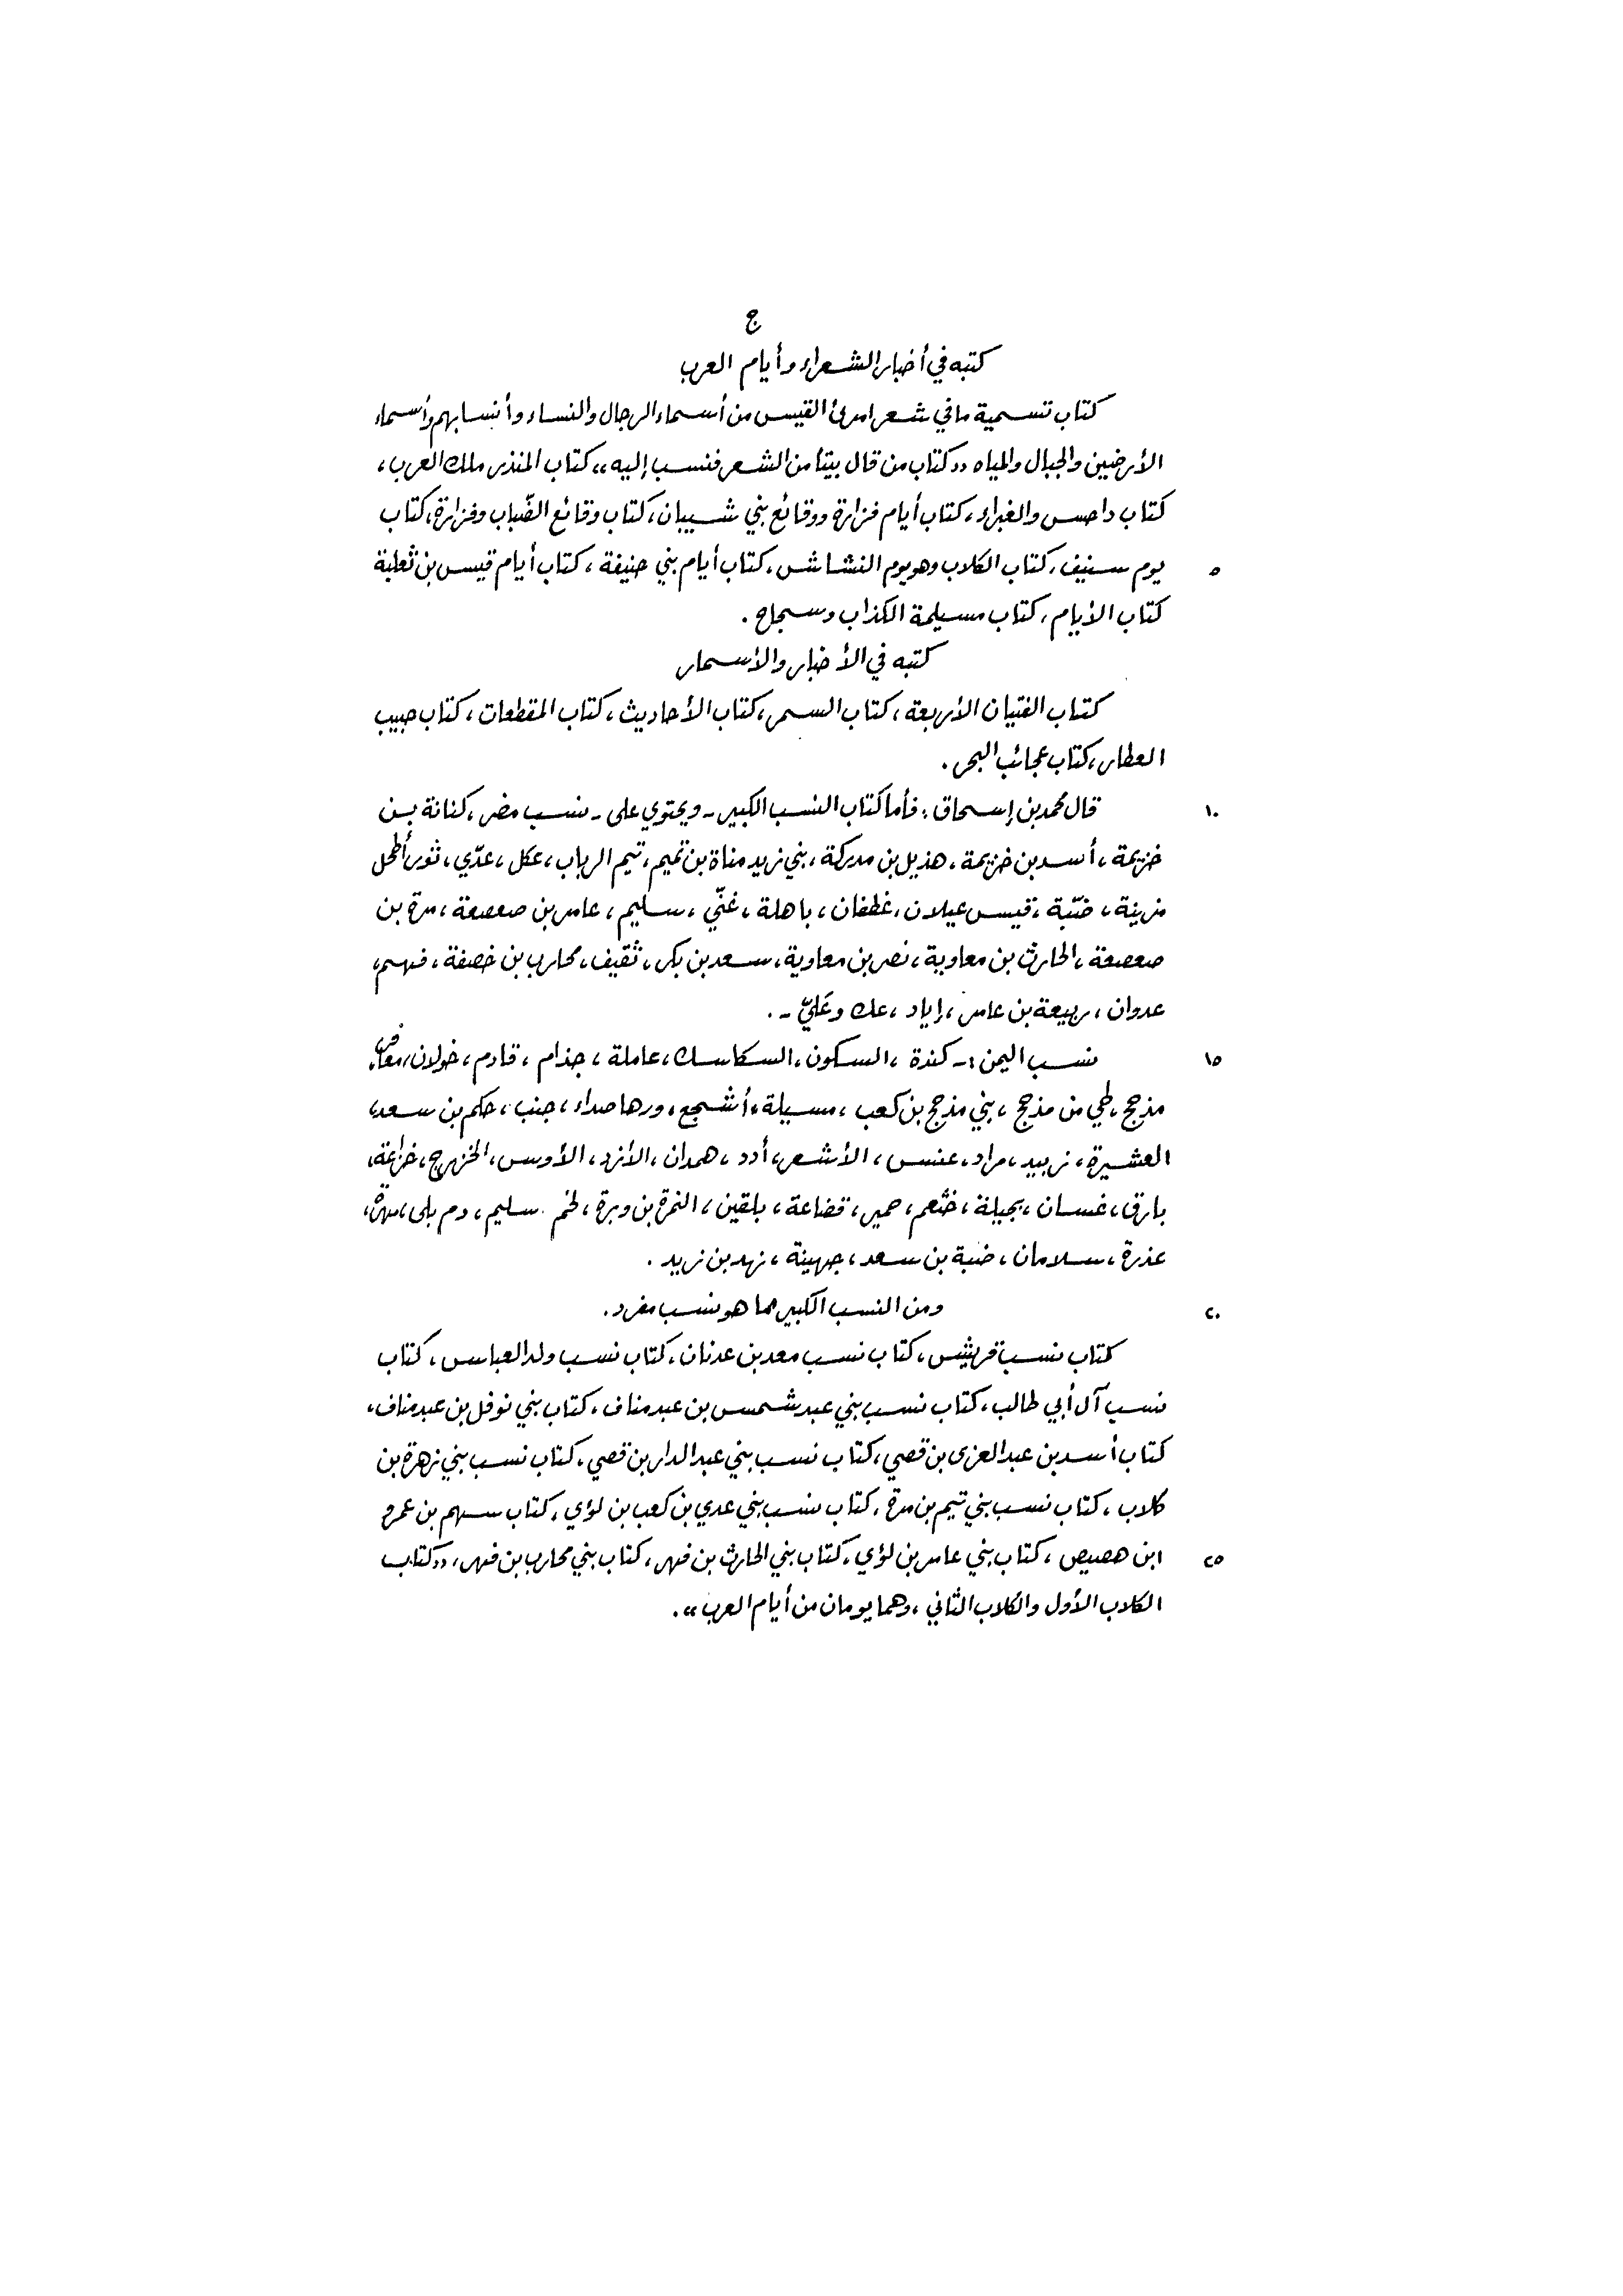 ج
كتبه في أخبار الشعراء وأيام العرب
كتاب تسمية ما في شعر امرئ القيس من أسماء الرجال والنساء وأنسابهم وأسماء
الأرضين والجبال والمياه «كتاب من قال بيتاً من الشعر فنسب إليه» كتاب المنذر ملك العرب،
كتاب داحس والغبراء، كتاب أيام فزارة ووقائع بني شيبان، كتاب وقائع الضّباب وفزارة، كتاب
٥ يوم سنيف، كتاب الكلاب وهو يوم النشاش، كتاب أيام بني حنيفة، كتاب أيام قيس بن ثعلبة
كتاب الأيام، كتاب مسيلمة الكذاب وسجاح.
كتبه في الأخبار والأسمار
كتاب الفتيان الأربعة، كتاب السمر، كتاب الأحاديث، كتاب المقطعات، كتاب حبيب
العطار، كتاب عجائب البحر.
١٠ قال محمد بن إسحاق: فأما كتاب النسب الكبير - ويحتوي على - نسب مضر، كنانة بن
خزيمة، أسد بن خزيمة، هذيل بن مدركة، بني زيد مناة بن تميم، تيم الرباب، عكل، عدّي، ثور أطحل
مزينة، ضبّة، قيس عيلان، غطفان، باهلة، غنّي، سليم، عامر بن صعصعة، مرة بن
صعصعة، الحارث بن معاوية، نصر بن معاوية، سعد بن بكر، ثقيف، محارب بن خصفة، فهم،
عدوان، ربيعة بن عامر، إياد، عك وعَليّ -.
١٥ نسب اليمن:- كندة، السكون، السكاسك، عاملة، جذام، قادم، خولان، معافر،
مذحج، طي من مذحج، بني مذحج بن كعب، مسيلة، أشجع، ورها صداء، جنب، حكم بن سعد،
العشيرة، زبيد، مراد، عنس، الأشعر، أدد، همدان، الأزد، الأوس، الخزرج، خزاعة،
بارق، غسان، بجيلة، خثعم، حمير، قضاعة، بلقين، النمرة بن وبرة، لخم سليم، دم بلى، مهرة،
عذرة، سلامان، ضبة بن سعد، جهينة، نهد بن زيد.
٢٠ ومن النسب الكبير مما هو نسب مفرد.
كتاب نسب قريش، كتاب نسب معد بن عدنان، كتاب نسب ولد العباس، كتاب
نسب آل أبي طالب، كتاب نسب بني عبد شمس بن عبد مناف، كتاب بني نوفل بن عبد مناف،
كتاب أسد بن عبد العزى بن قصي، كتاب نسب بني عبد الدار بن قصي، كتاب نسب بني زهرة بن
كلاب، كتاب نسب بني تيم بن مرة، كتاب نسب بني عدي بن كعب بن لؤي، كتاب سهم بن عمرو
٢٥ ابن هصيص، كتاب بني عامر بن لؤي، كتاب بني الحارث بن فهر، كتاب بني محارب بن فهر، «كتاب
الكلاب الأول والكلاب الثاني، وهما يومان من أيام العرب».